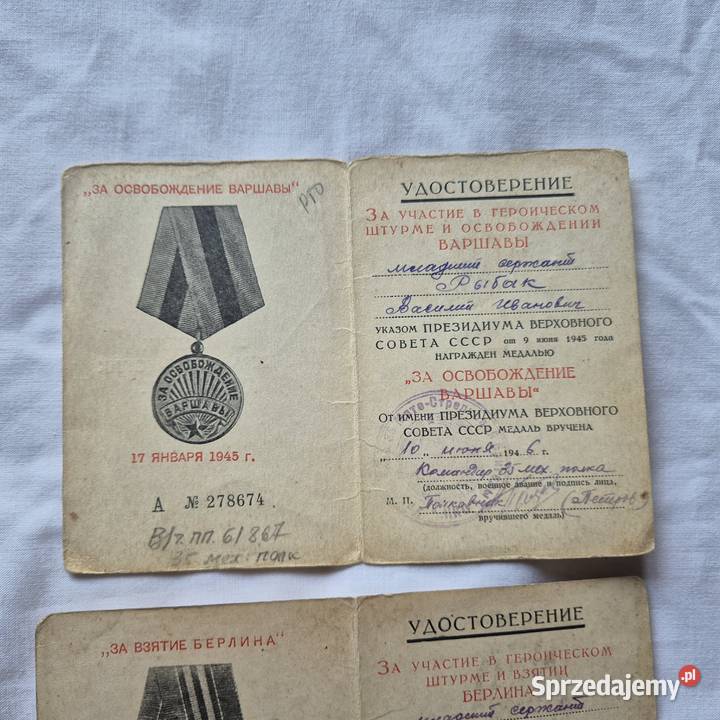 „ЗА ОСВОБОЖДЕНИЕ ВАРШАВЫ"
РГО
ЗА ОСВОБОЖДЕНИЕ
ВАРШАВЫ
17 ЯНВАРЯ 1945 г.
А № 278674
В/ч пп. 61867
35 мех. полк
УДОСТОВЕРЕНИЕ
ЗА УЧАСТИЕ В ГЕРОИЧЕСКОМ
ШТУРМЕ И ОСВОБОЖДЕНИИ
ВАРШАВЫ
младший сержант
Рыбак
Василий Иванович
УКАЗОМ ПРЕЗИДИУМА ВЕРХОВНОГО
СОВЕТА СССР от 9 июня 1945 года
НАГРАЖДЕН МЕДАЛЬЮ
„ЗА ОСВОБОЖДЕНИЕ
ВАРШАВЫ"
ОТ ИМЕНИ ПРЕЗИДИУМА ВЕРХОВНОГО
СОВЕТА СССР МЕДАЛЬ ВРУЧЕНА
„10" июня 1946 г.
Командир 35 мех. полка
(должность, военное звание и подпись лица,
М. П. Полковник (Петров)
вручившего медаль)
„ЗА ВЗЯТИЕ БЕРЛИНА"
УДОСТОВЕРЕНИЕ
ЗА УЧАСТИЕ В ГЕРОИЧЕСКОМ
ШТУРМЕ И ВЗЯТИИ
БЕРЛИНА
младший сержант
Sprzedajemy.pl